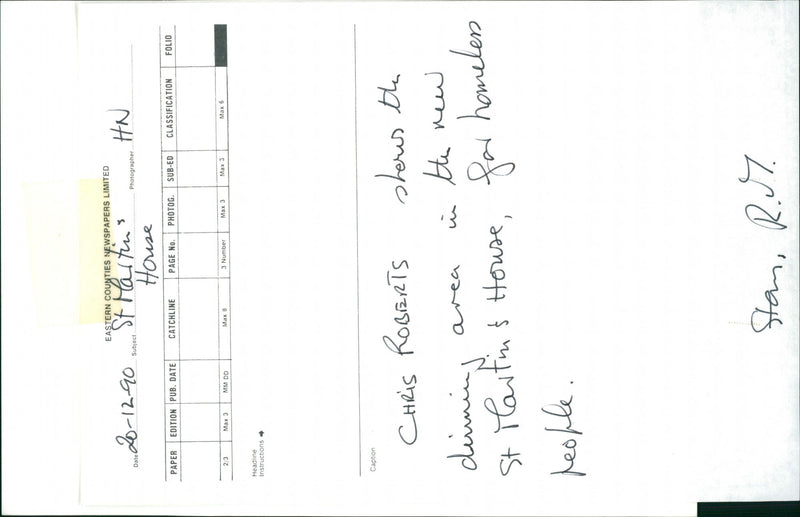 EASTERN COUNTIES NEWSPAPERS LIMITED
Date 20-12-90 Subject St Martin's House Photographer HN
PAPER EDITION PUB. DATE CATCHLINE PAGE No. PHOTOG. SUB-ED CLASSIFICATION FOLIO
2/3 Max 3 MM DD Max 8 3 Number Max 3 Max 3 Max 6
Headline
Instructions
Caption
CHRIS ROBERTS shows the
dinning area in the new
St Martin's House, for homeless
people.